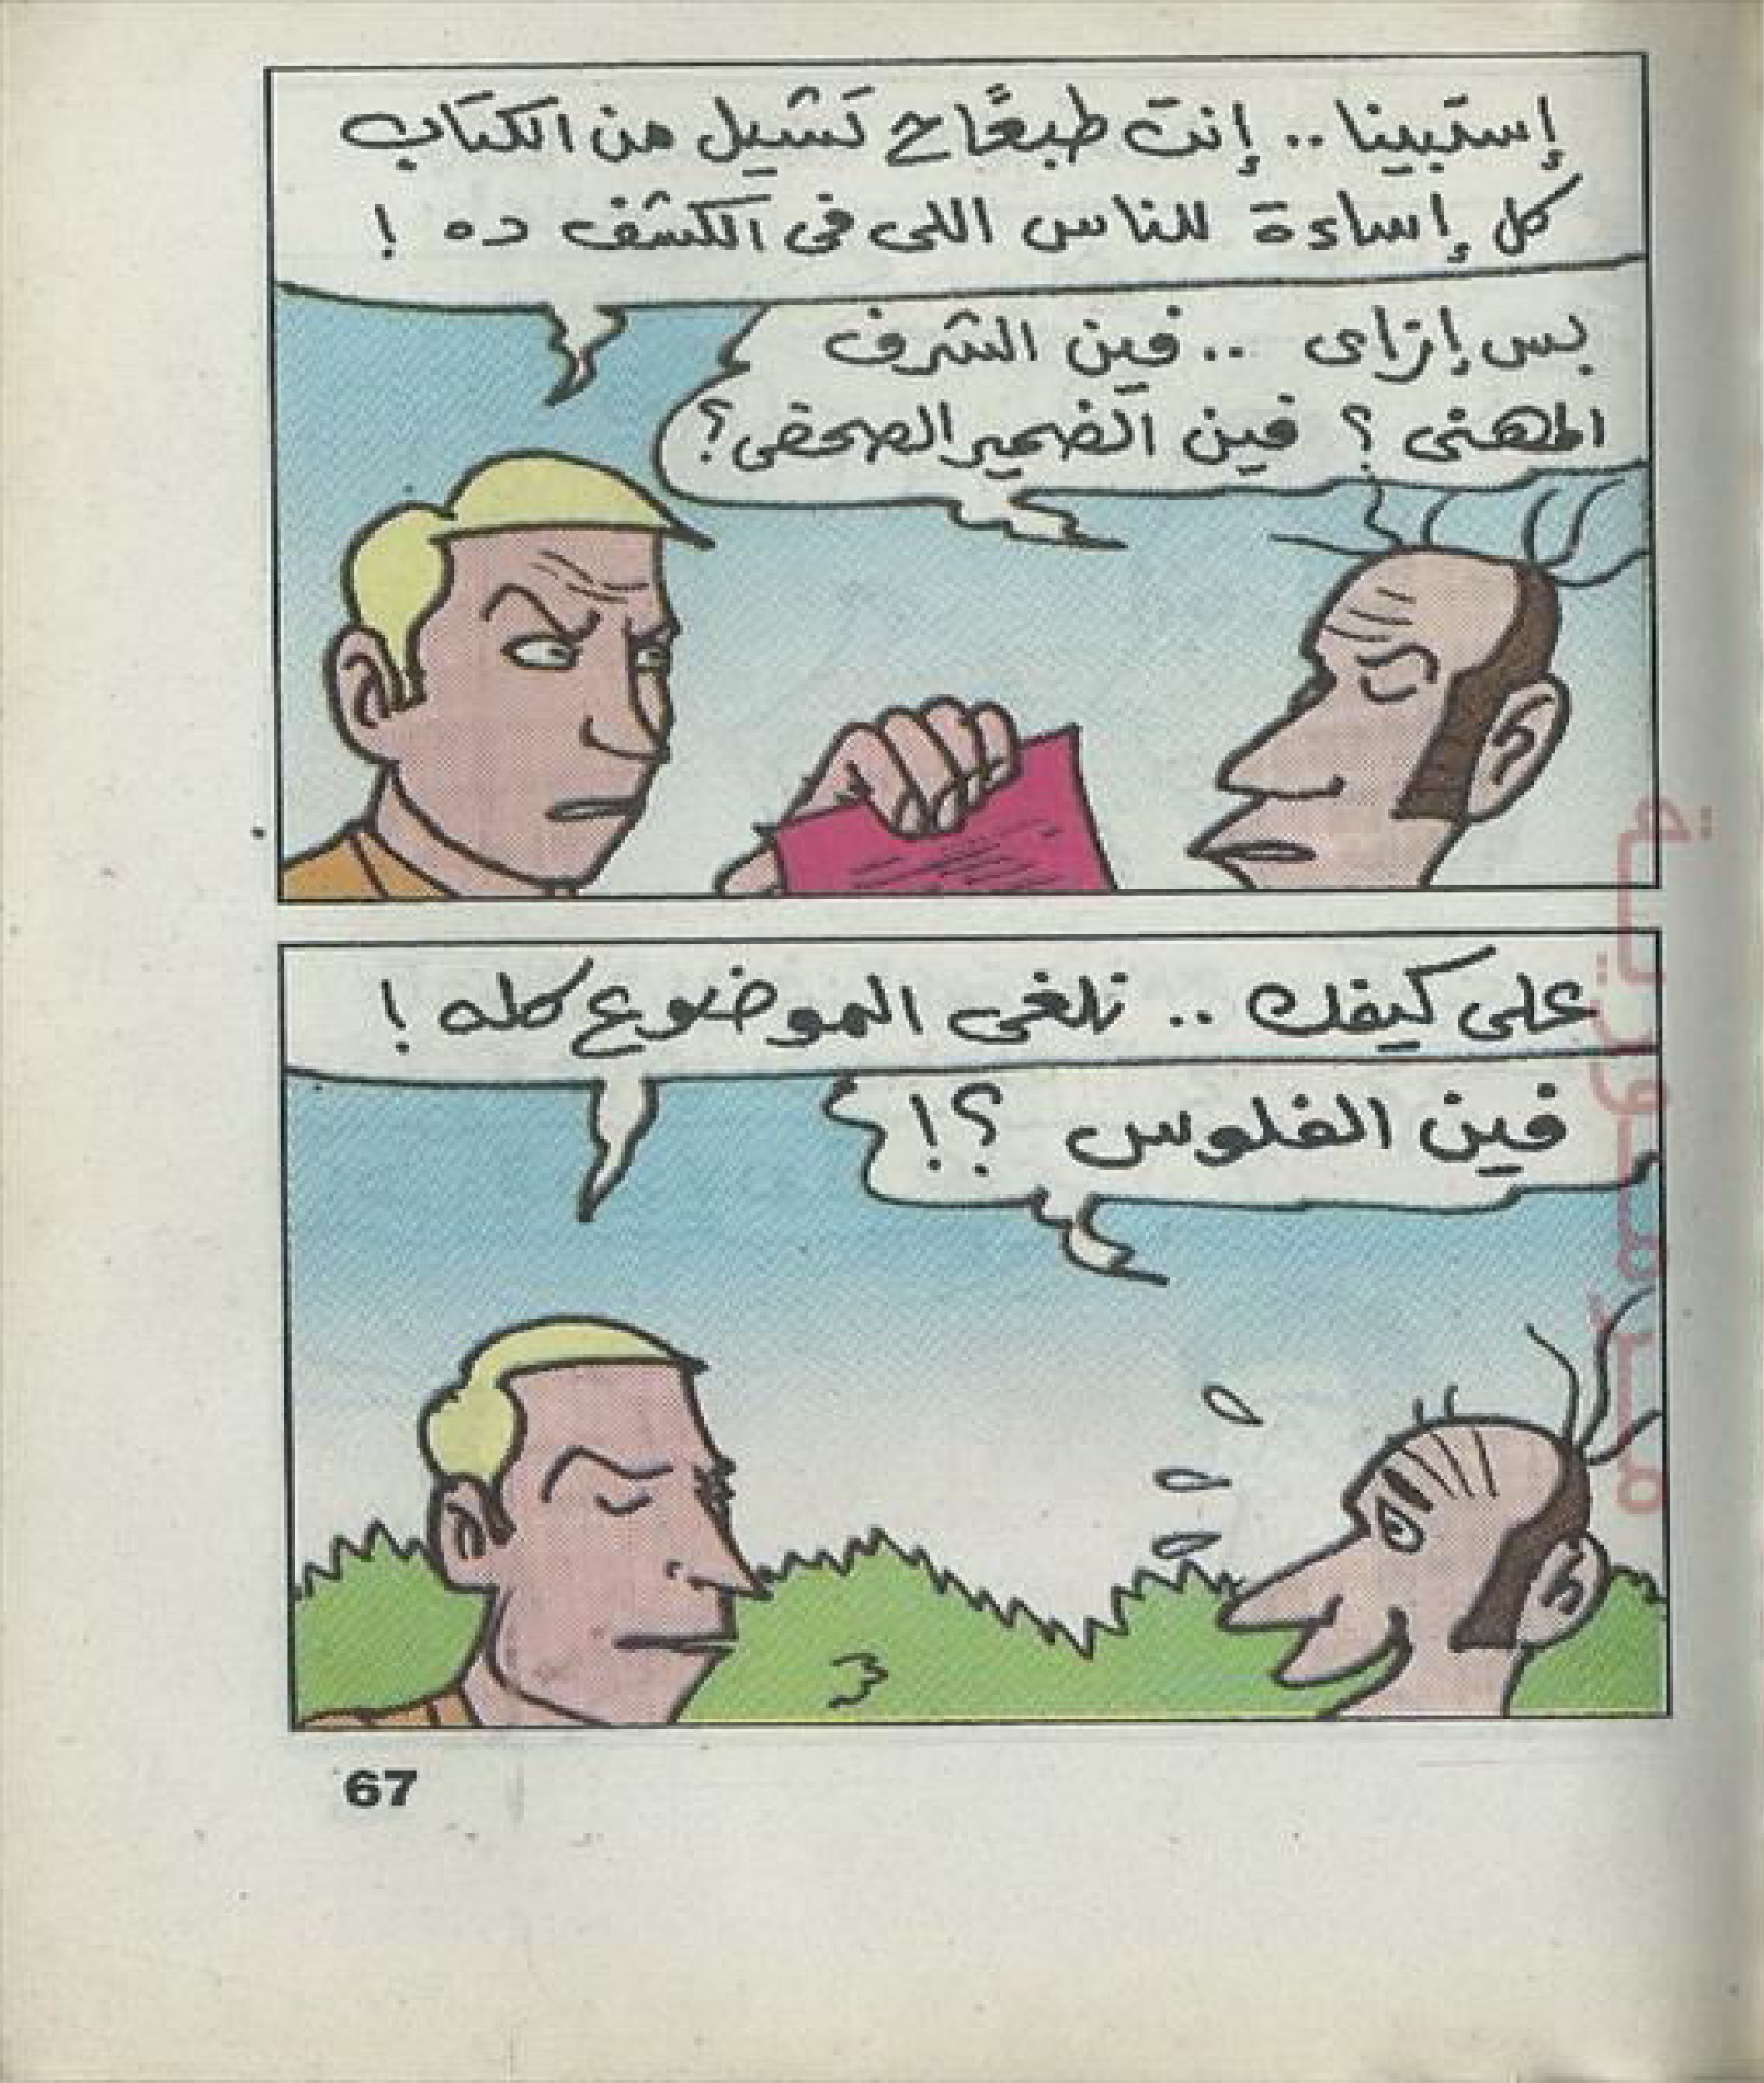 إستبينا .. إنت طبعًا ح تشيل من الكتاب
كل إساءة للناس اللى فى الكشف ده !
بس إزاى .. فين الشرف
المهنى ؟ فين الضمير الصحفى ؟
على كيفك .. نلغى الموضوع كله !
فين الفلوس ؟!
67